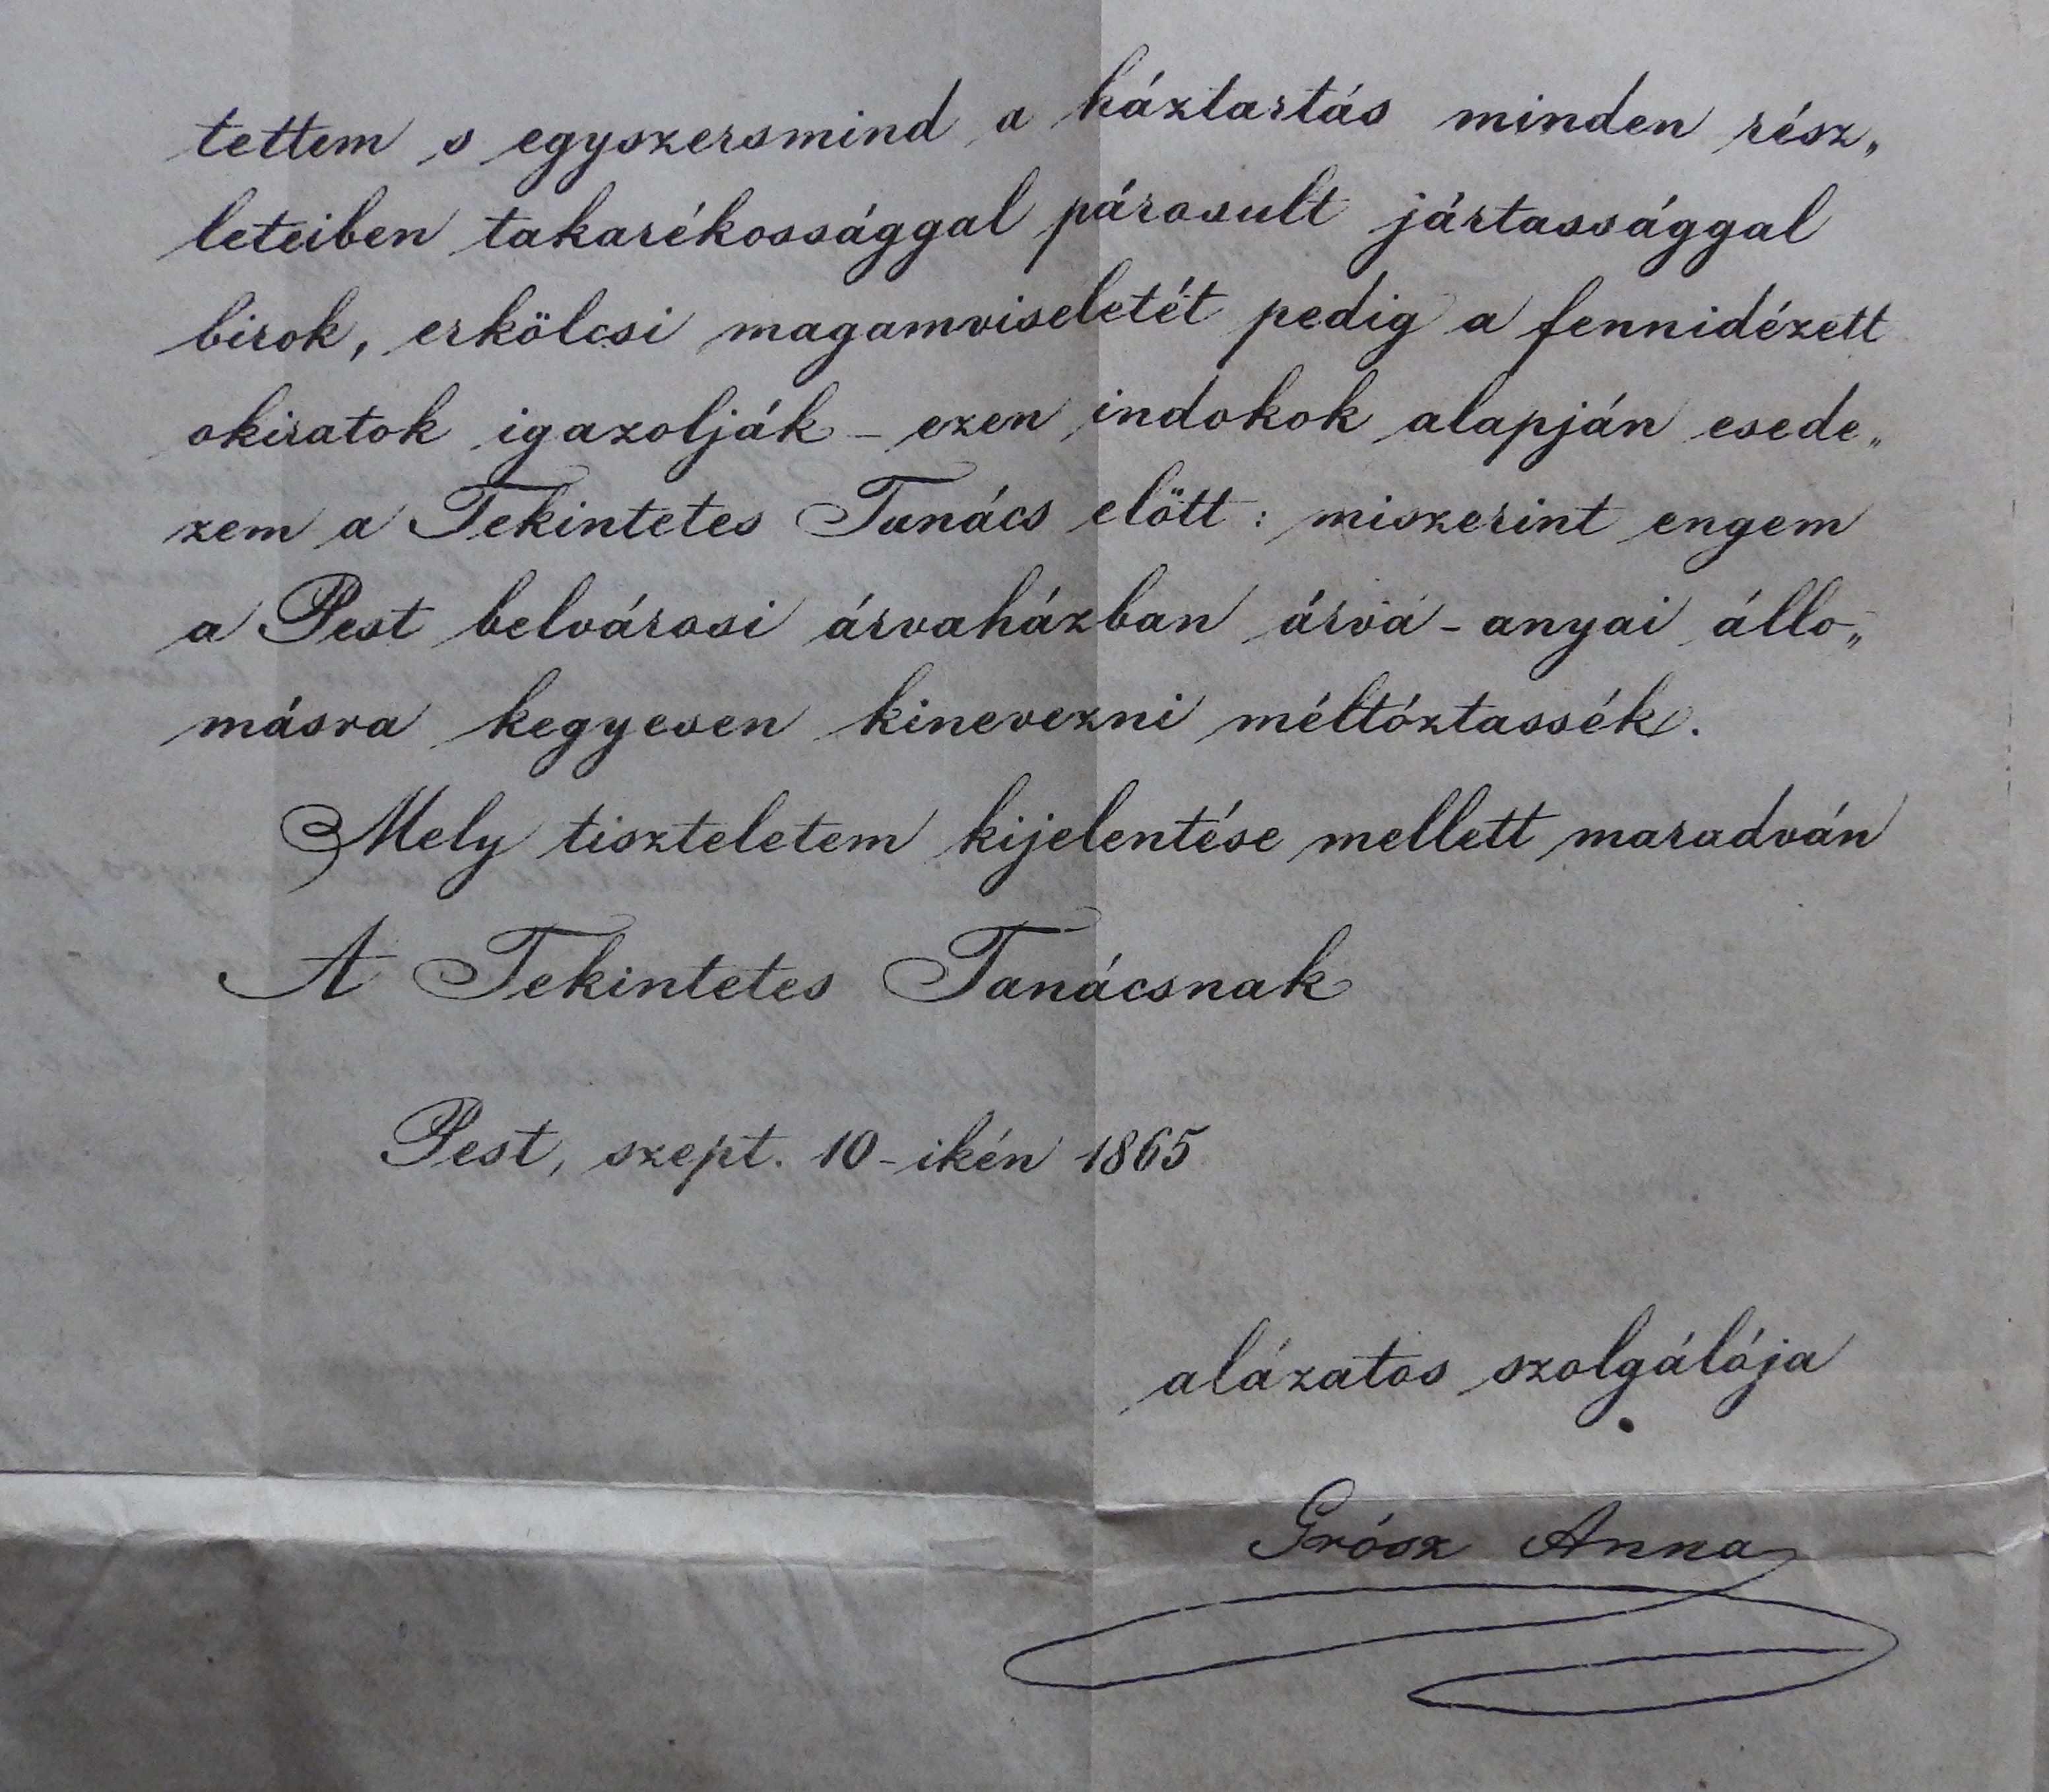 tettem s egyszersmind a háztartás minden rész„
leteiben takarékossággal párosult jártassággal
birok, erkölcsi magamviseletét pedig a fennidézett
okiratok igazolják – ezen indokok alapján esede„
zem a Tekintetes Tanács előtt : miszerint engem
a Pest belvárosi árvaházban árva - anyai állo„
másra kegyesen kinevezni méltóztassék.
Mely tiszteletem kijelentése mellett maradván
A Tekintetes Tanácsnak
Pest, szept. 10 - ikén 1865
alázatos szolgálója
Grósz Anna